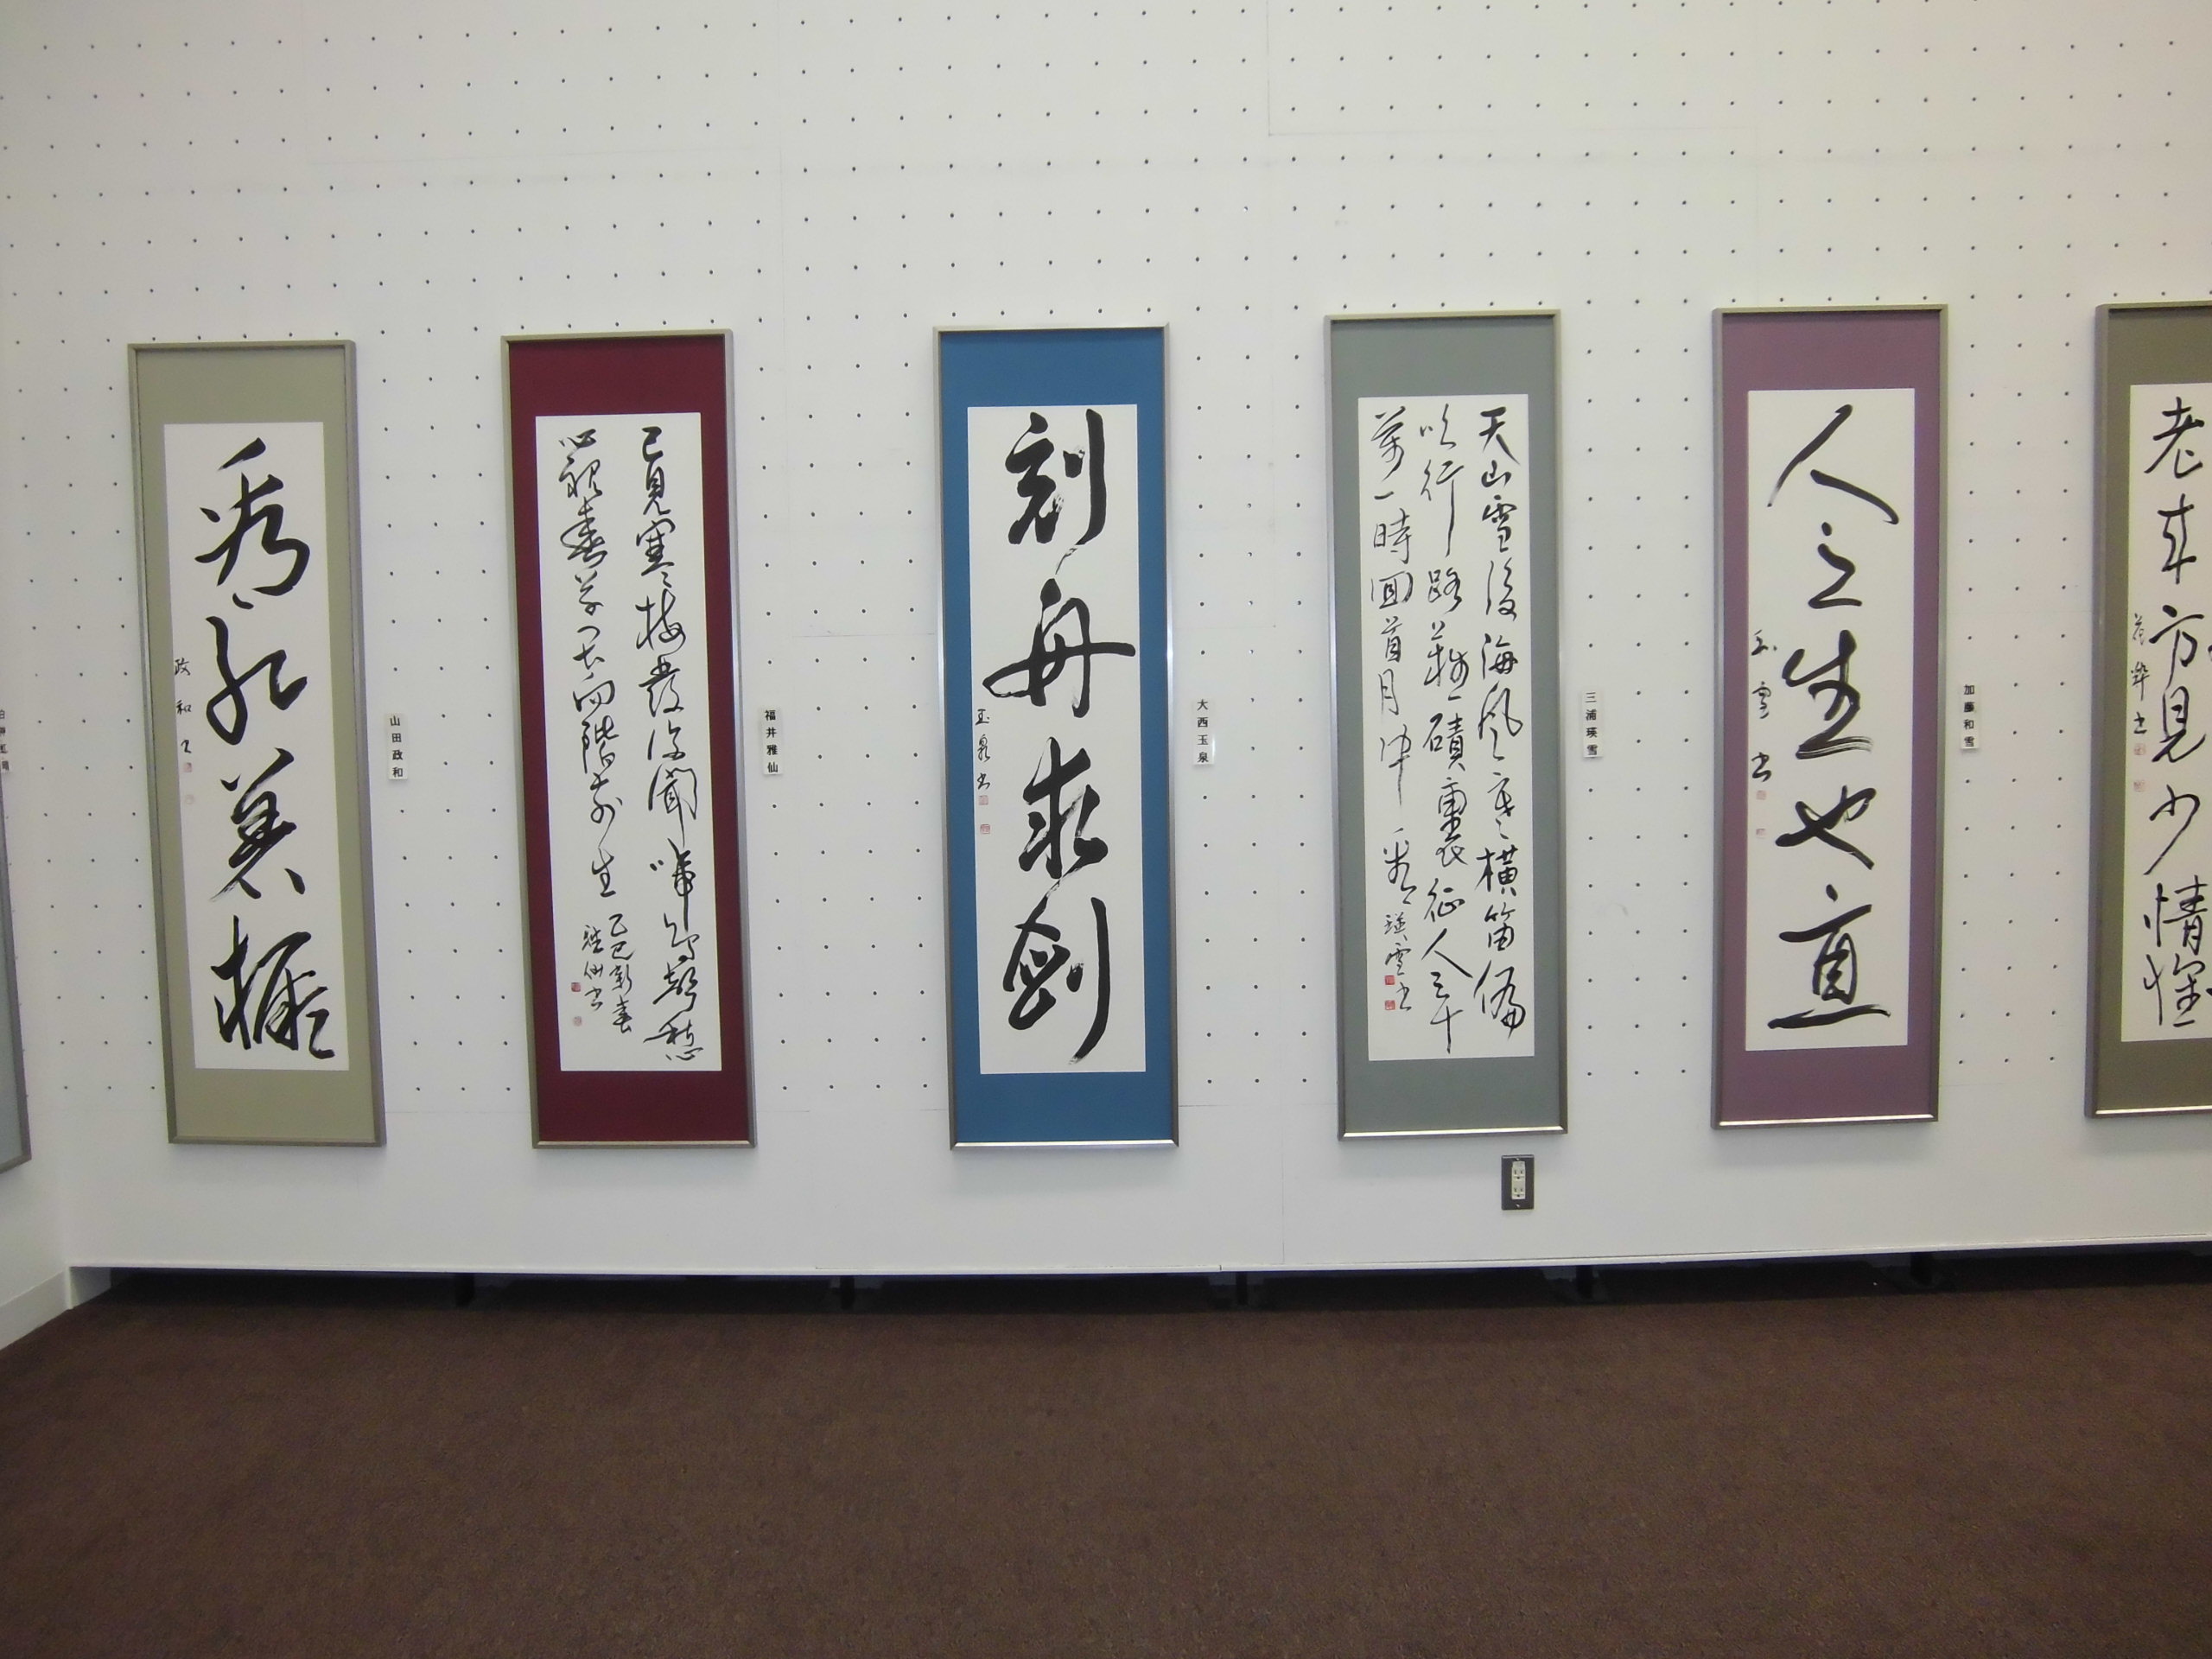 政和
山田政和
已見寒梅發復聞啼鳥聲愁
心視春草畏向階前生
乙巳新春
雅仙書
福井雅仙
刻舟求剣
玉泉書
大西玉泉
天山雪後海風寒横笛偏
吹行路難磧裏征人三十
萬一時回首月中看 瑛雪書
三浦瑛雪
人之生也直
和雪書
加藤和雪
老 方見少情